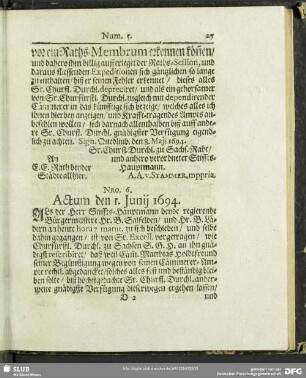 Num. 5. 27
vor ein Raths-Membrum erkennen können/
und dahero ihm billig auferleget der Raths-Session, und
daraus fliessenden Expeditionen sich gänzlichen so lange
zu enthalten/ biß er seinen Fehler erkennet/ dieses alles
Sr. Churfl. Durchl. depreciret/ und als ein gehorsamer
von Sr. Churfürstl. Durchl. zugleich mit dependirende
Cämmerer in das künfftige sich bezeige; welches alles ich
ihnen hierbey anzeigen/ und Krafft tragenden Ampts an-
befohlen wollen/ sich darnach allenthalben biß auff ande-
re Sr. Churfl. Durchl. gnädigster Verfügung eigend-
lich zu achten. Sign. Quedlinb. den 3. Maji 1694.
Sr. Churfl. Durchl. zu Sachs. Rath/
An und anhero verordneter Stiffts-
E.E. Rath beyder Hauptmann.
Städte allhier. A.A. v. STAMMER, mppria.
Nro. 6.
Actum den 1. Junij 1694.
Als der Herr Stiffts-Hauptmann beyde regierende
Bürgermeistere Hr. B. Salfelden/ und Hr. B. Vä-
dern an heute hora 7. matut. zu sich beschieden/ und selbe
dahin gegangen/ ist von Sr. Excell. vorgetragen/ wie
Churfürstl. Durchl. zu Sachsen S. G. H. an ihn gnä-
digst rescribiret/ daß weil Cäm. Matthias Holdefreund
seiner Begünstigung wegen von seinen Cämmerer-Am-
pte rechtl. abgedancket/ solches alles fest und beständig blei-
ben solte/ biß höchstgedachte Sr. Churfl. Durchl. ander-
weite gnädigste Verfügung dieserwegen ergehen lassen/
D 2 und
SLUB
Wir führen Wissen.